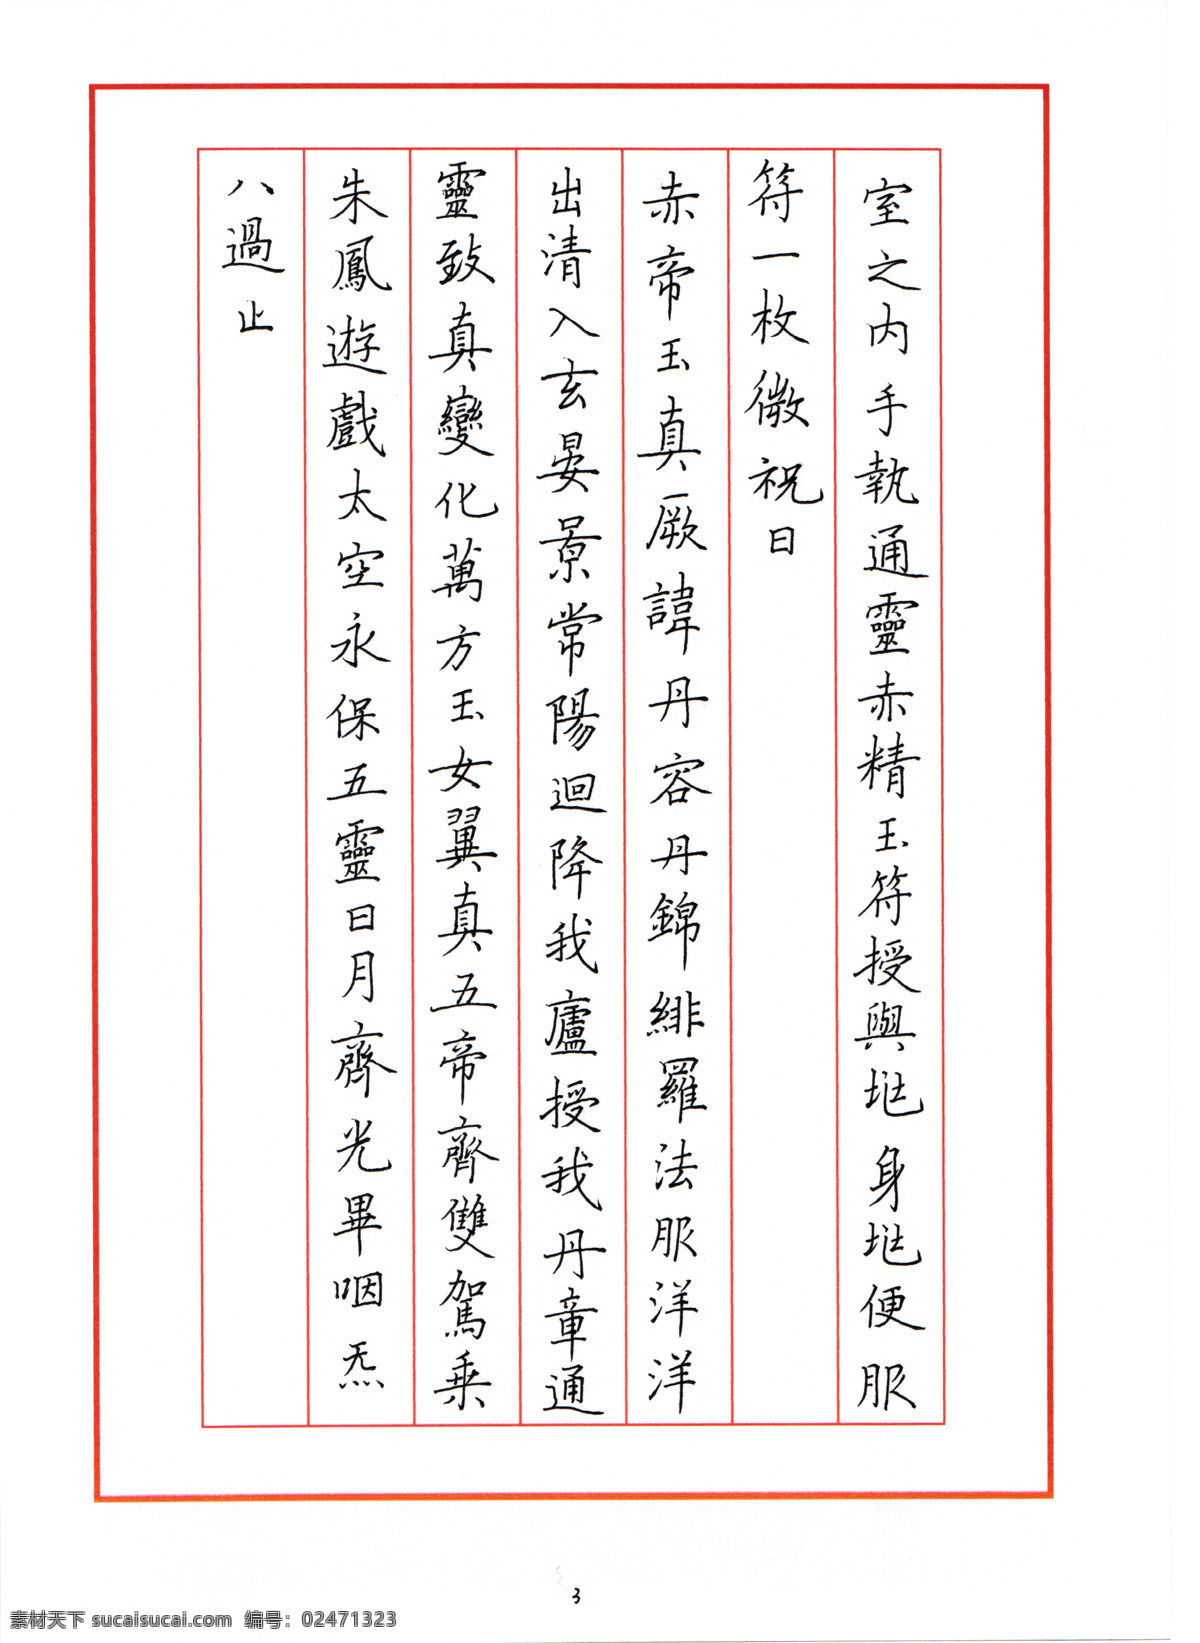 室之内手執通靈赤精玉符授與兆身兆便服
符一枚微祝曰
赤帝玉真厥諱丹容丹錦緋羅法服洋洋
出清入玄晏景常陽迴降我廬授我丹章通
靈致真變化萬方玉女翼真五帝齊雙駕乗
朱鳳遊戲太空永保五靈日月齊光畢咽炁
八過止
3
素材天下 sucaisucai.com 编号：02471323